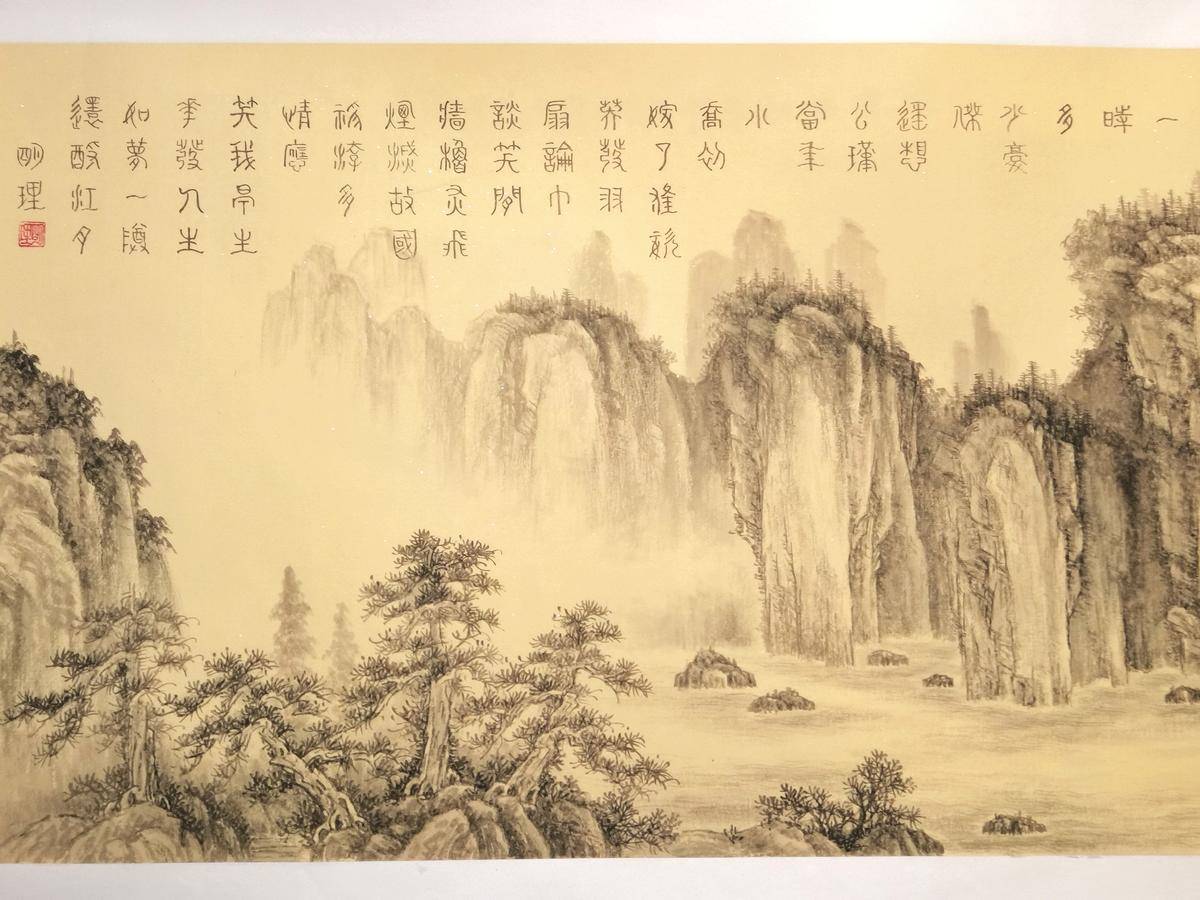 一
時
多
少豪
傑
遙想
公瑾
當年
小
喬初
嫁了雄姿
英發羽
扇論巾
談笑間
牆櫓灰飛
煙滅故國
神游多
情應
笑我早生
華發人生
如夢一樽
還酹江月
明理